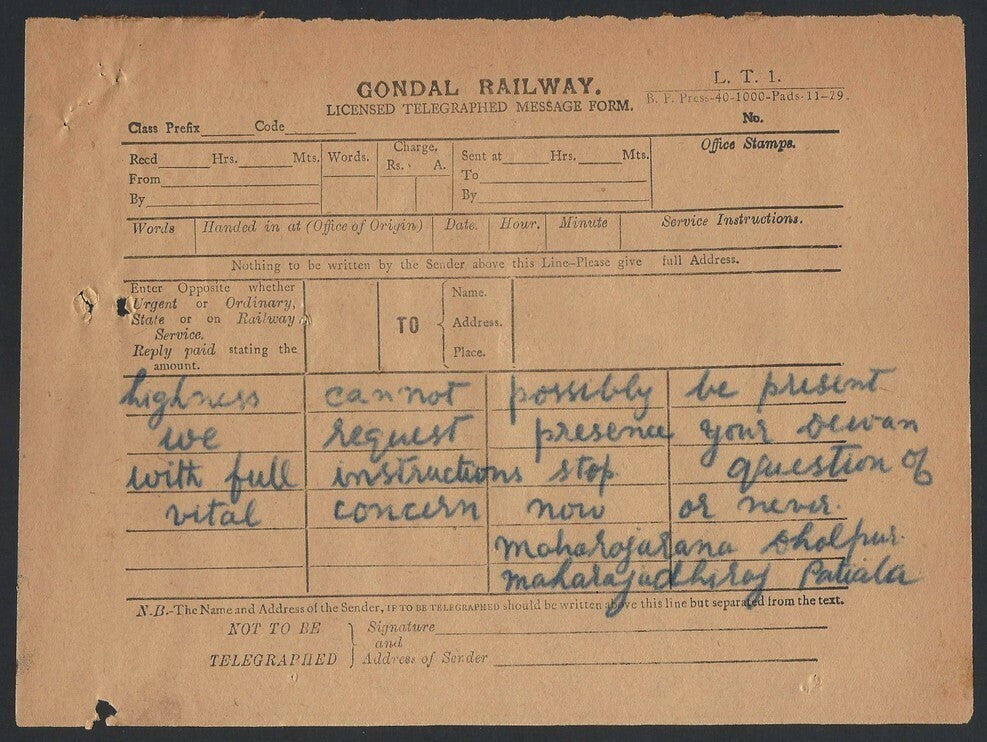 GONDAL RAILWAY.
L. T. 1.
LICENSED TELEGRAPHED MESSAGE FORM.
B. P. Press-40-1000-Pads-11-29.
No.
Class Prefix Code
Office Stamps.
Recd Hrs. Mts. Words. Charge. Sent at Hrs. Mts.
Rs. A.
From To
By By
Words Handed in at (Office of Origin) Date. Hour. Minute Service Instructions.
Nothing to be written by the Sender above this Line-Please give full Address.
Enter Opposite whether
Urgent or Ordinary,
State or on Railway
Service.
Reply paid stating the
amount.
TO
Name.
Address.
Place.
highness cannot possibly be present
we request presence your Dewan
with full instructions stop question of
vital concern now or never.
Maharajarana Dholpur.
Maharajadhiraj Patiala
N.B.-The Name and Address of the Sender, IF TO BE TELEGRAPHED should be written above this line but separated from the text.
NOT TO BE
TELEGRAPHED
Signature
and
Address of Sender